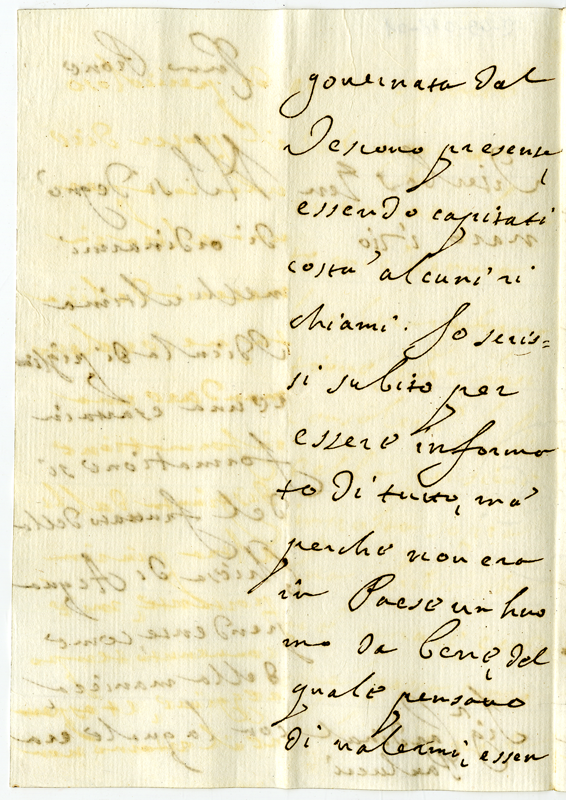 gouernata dal
Vescouo presente,
essendo capitati
costà alcuni ri
chiami. Io scris=
si subito per
essere informa
to di tutto, mà
perche non era
in Paese un huo
mo da bene, del
quale pensauo
di ualermi, essen